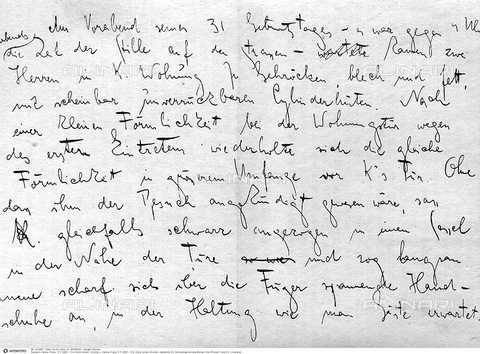 Am Vorabend seines 31 Geburtstages – es war gegen 9 Uhr
abends, die Zeit der Stille auf den Strassen – kamen zwei
Herren in K. Wohnung. In Gehröcken bleich und fett,
mit scheinbar unverrückbaren Cylinderhüten. Nach
einer kleinen Förmlichkeit bei der Wohnungstür wegen
des ersten Eintretens wiederholte sich die gleiche
Förmlichkeit in grösserem Umfange vor K's Tür. Ohne
dass ihm der Besuch angekündigt gewesen wäre, sass
K. gleichfalls schwarz angezogen in einem Sessel
in der Nähe der Türe und zog langsam
neue scharf sich über die Finger spannende Hand-
schuhe an, in der Haltung wie man Gäste erwartet.
ALINARI
INTERFOTO